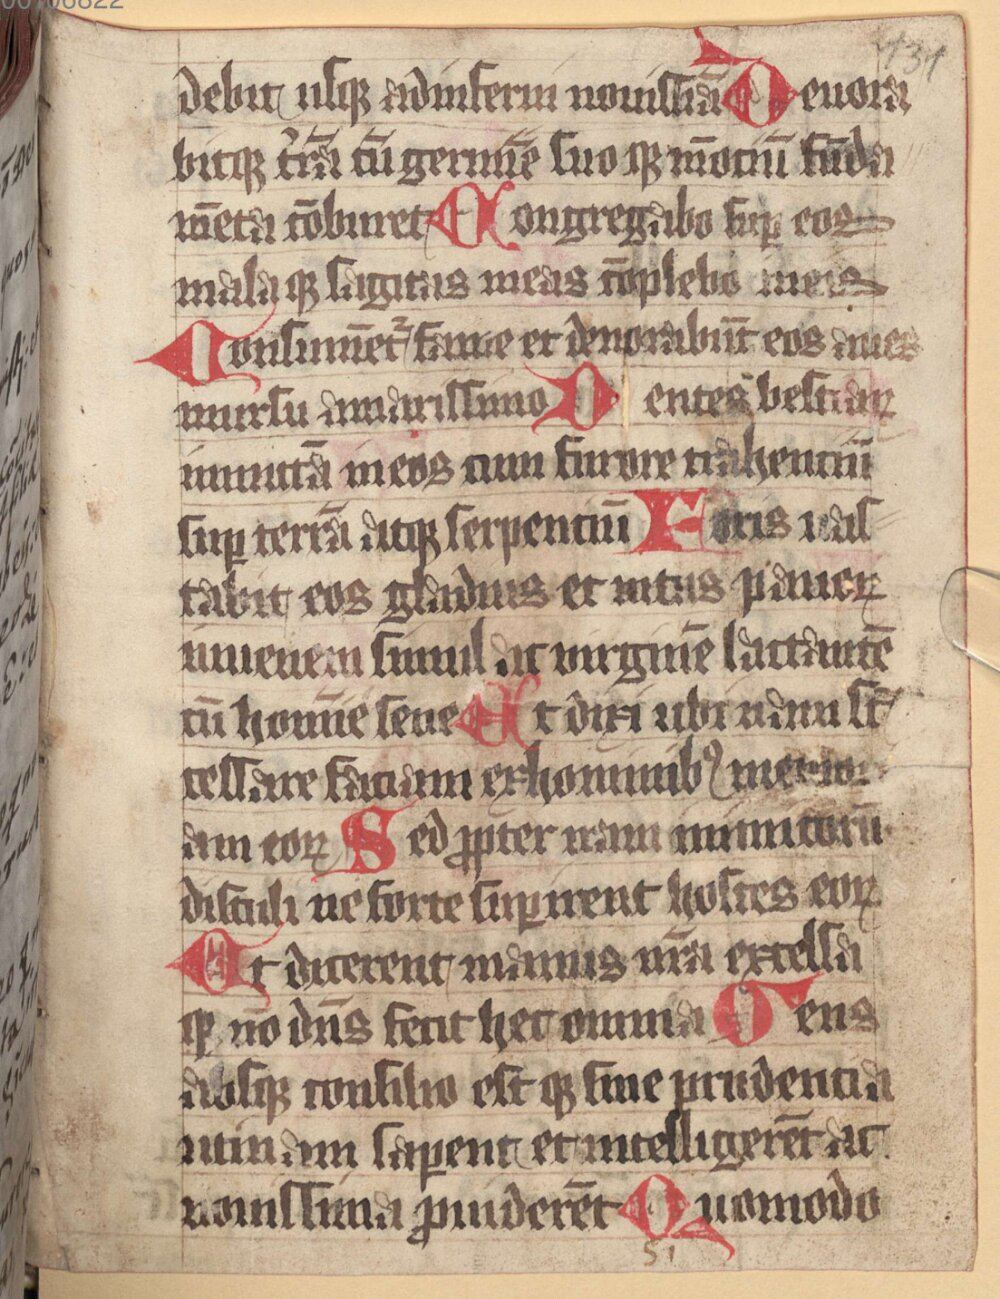 131
debit usq adinferni nouissīa Deuora
bitq t'rā cū germīe suo q mōtiū fūda
mēta cōburet Congregabo sup eos
mala q sagitas meas cōplebo ineis
Consumēt fame et deuorabūt eos aues
mursu amarissimo Dentes bestiaꝝ
inmittā ineos cum furore trahentiū
sup terrā atq serpentiū Foris uas
tabit eos gladius et intus pauoꝝ
iuuenem simul ac virginē lactantē
cū homīe sene Et dixi ubi nam st̄
cessare faciam exhominibꝰ memori
am eoꝝ Sed ꝓpter iram inimicorū
distuli ne forte supirent hostes eoꝝ
Et dicerent manus nr̄a excelsa
q nō dn̄s fecit hec omnia Gens
absq consilio est q sine prudentia
utinam saperent et intelligerēt ac
nouissima ꝓuiderēt Quomodo
51